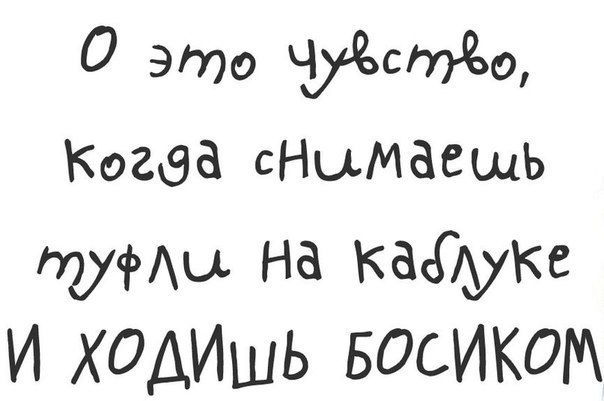 О это чувство,
когда снимаешь
туфли на каблуке
И ХОДИШЬ БОСИКОМ